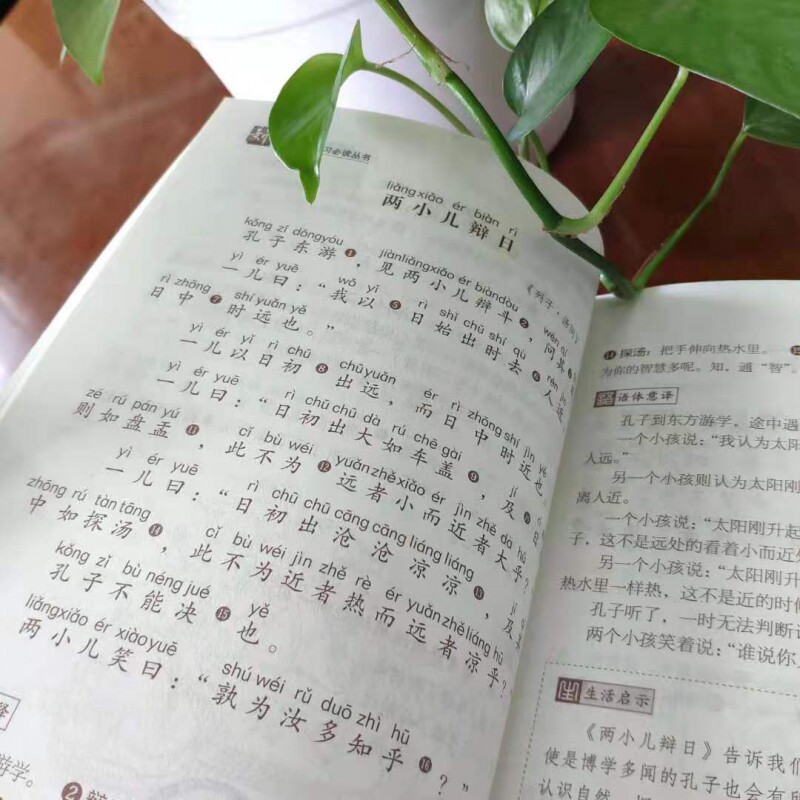 习必读丛书
liǎng xiǎo ér biàn rì
两小儿辩日
《列子·汤问》
kǒng zǐ dōng yóu jiàn liǎng xiǎo ér biàn dòu wèn qí
孔子东游❶，见两小儿辩斗❷，问其
yì ér yuē wǒ yǐ rì shǐ chū shí qù rén jìn
一儿曰：“我以❺日始出时去❻人近
rì zhōng shí yuǎn yě
日中❼时远也。”
yì ér yǐ rì chū chū yuǎn ér rì zhōng shí jìn yě
一儿以日初❽出远，而日中时近也
yì ér yuē rì chū chū dà rú chē gài jí rì
一儿曰：“日初出大如车盖❾，及日
zé rú pán yú cǐ bù wéi yuǎn zhě xiǎo ér jìn zhě dà hū
则如盘盂⓫，此不为⓬远者小而近者大乎？
yì ér yuē rì chū chū cāng cāng liáng liáng jí qí
一儿曰：“日初出沧沧凉凉⓭，及其
zhōng rú tàn tāng cǐ bù wéi jìn zhě rè ér yuǎn zhě liáng hū
中如探汤⓮，此不为近者热而远者凉乎？
kǒng zǐ bù néng jué yě
孔子不能决⓯也。
liǎng xiǎo ér xiào yuē shú wéi rǔ duō zhì hū
两小儿笑曰：“孰为汝多知乎⓰？”
释
游学。
❷辩
⓮探汤：把手伸向热水里。
为你的智慧多呢。知，通“智”。
语体意译
孔子到东方游学，途中遇
一个小孩说：“我认为太阳
人远。”
另一个小孩则认为太阳
离人近。
一个小孩说：“太阳刚升起
子，这不是远处的看着小而近处
另一个小孩说：“太阳刚升
热水里一样热，这不是近的时候
孔子听了，一时无法判断
两个小孩笑着说：“谁说你
生活启示
《两小儿辩日》告诉我们
使是博学多闻的孔子也会有
认识自然